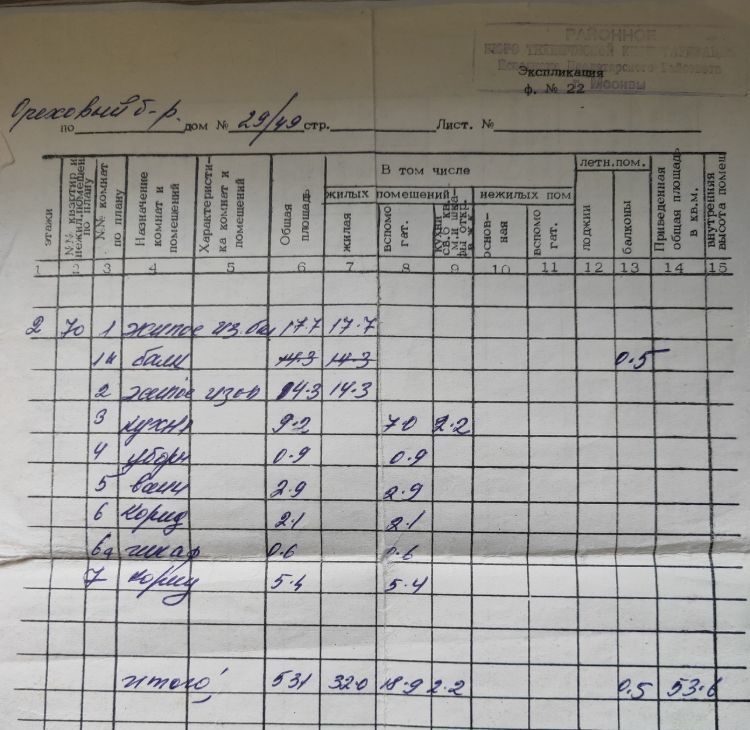 РАЙОННОЕ
БЮРО ТЕХНИЧЕСКОЙ ИНВЕНТАРИЗАЦИИ
г. Москвы
Экспликация
ф. № 22
по Ореховый б-р. дом № 29/49 стр. Лист. №
этажи
№№ квартир и нежил.помещен по плану
№№ комнат по плану
Назначение комнат и помещений
Характеристи-ка комнат и помещений
Общая площадь
В том числе
жилых помещений
жилая
вспомо гат.
нежилых пом
основ-ная
вспомо гат.
летн.пом.
лоджии
балконы
Приведенная общая площадь в кв.м.
внутренняя высота помещ
1 2 3 4 5 6 7 8 9 10 11 12 13 14 15
2 70 1 жилое из.бал 17.7 17.7
1а балк 14.3 14.3 0.5
2 жилое изол 14.3 14.3
3 кухня 9.2 7.0 2.2
4 уборн 0.9 0.9
5 ванн 2.9 2.9
6 корид 2.1 2.1
6а шкаф 0.6 0.6
7 корид 5.4 5.4
итого: 53.1 32.0 18.9 2.2 0.5 53.6